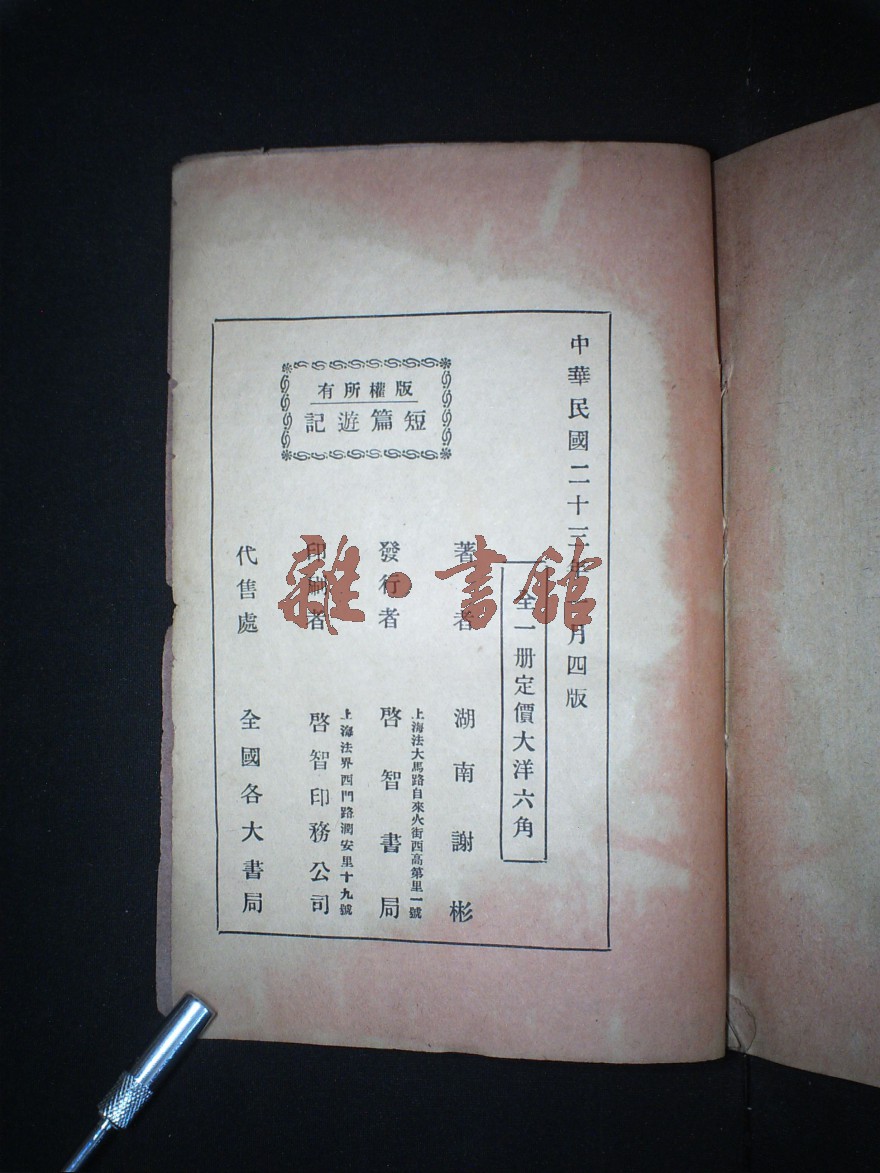 中華民國二十三年一月四版
全一册定價大洋六角
版權所有
短篇遊記
著者 湖南謝彬
上海法大馬路自來火街西高第里一號
發行者 啓智書局
上海法界西門路潤安里十九號
印刷者 啓智印務公司
代售處 全國各大書局
雜·書館